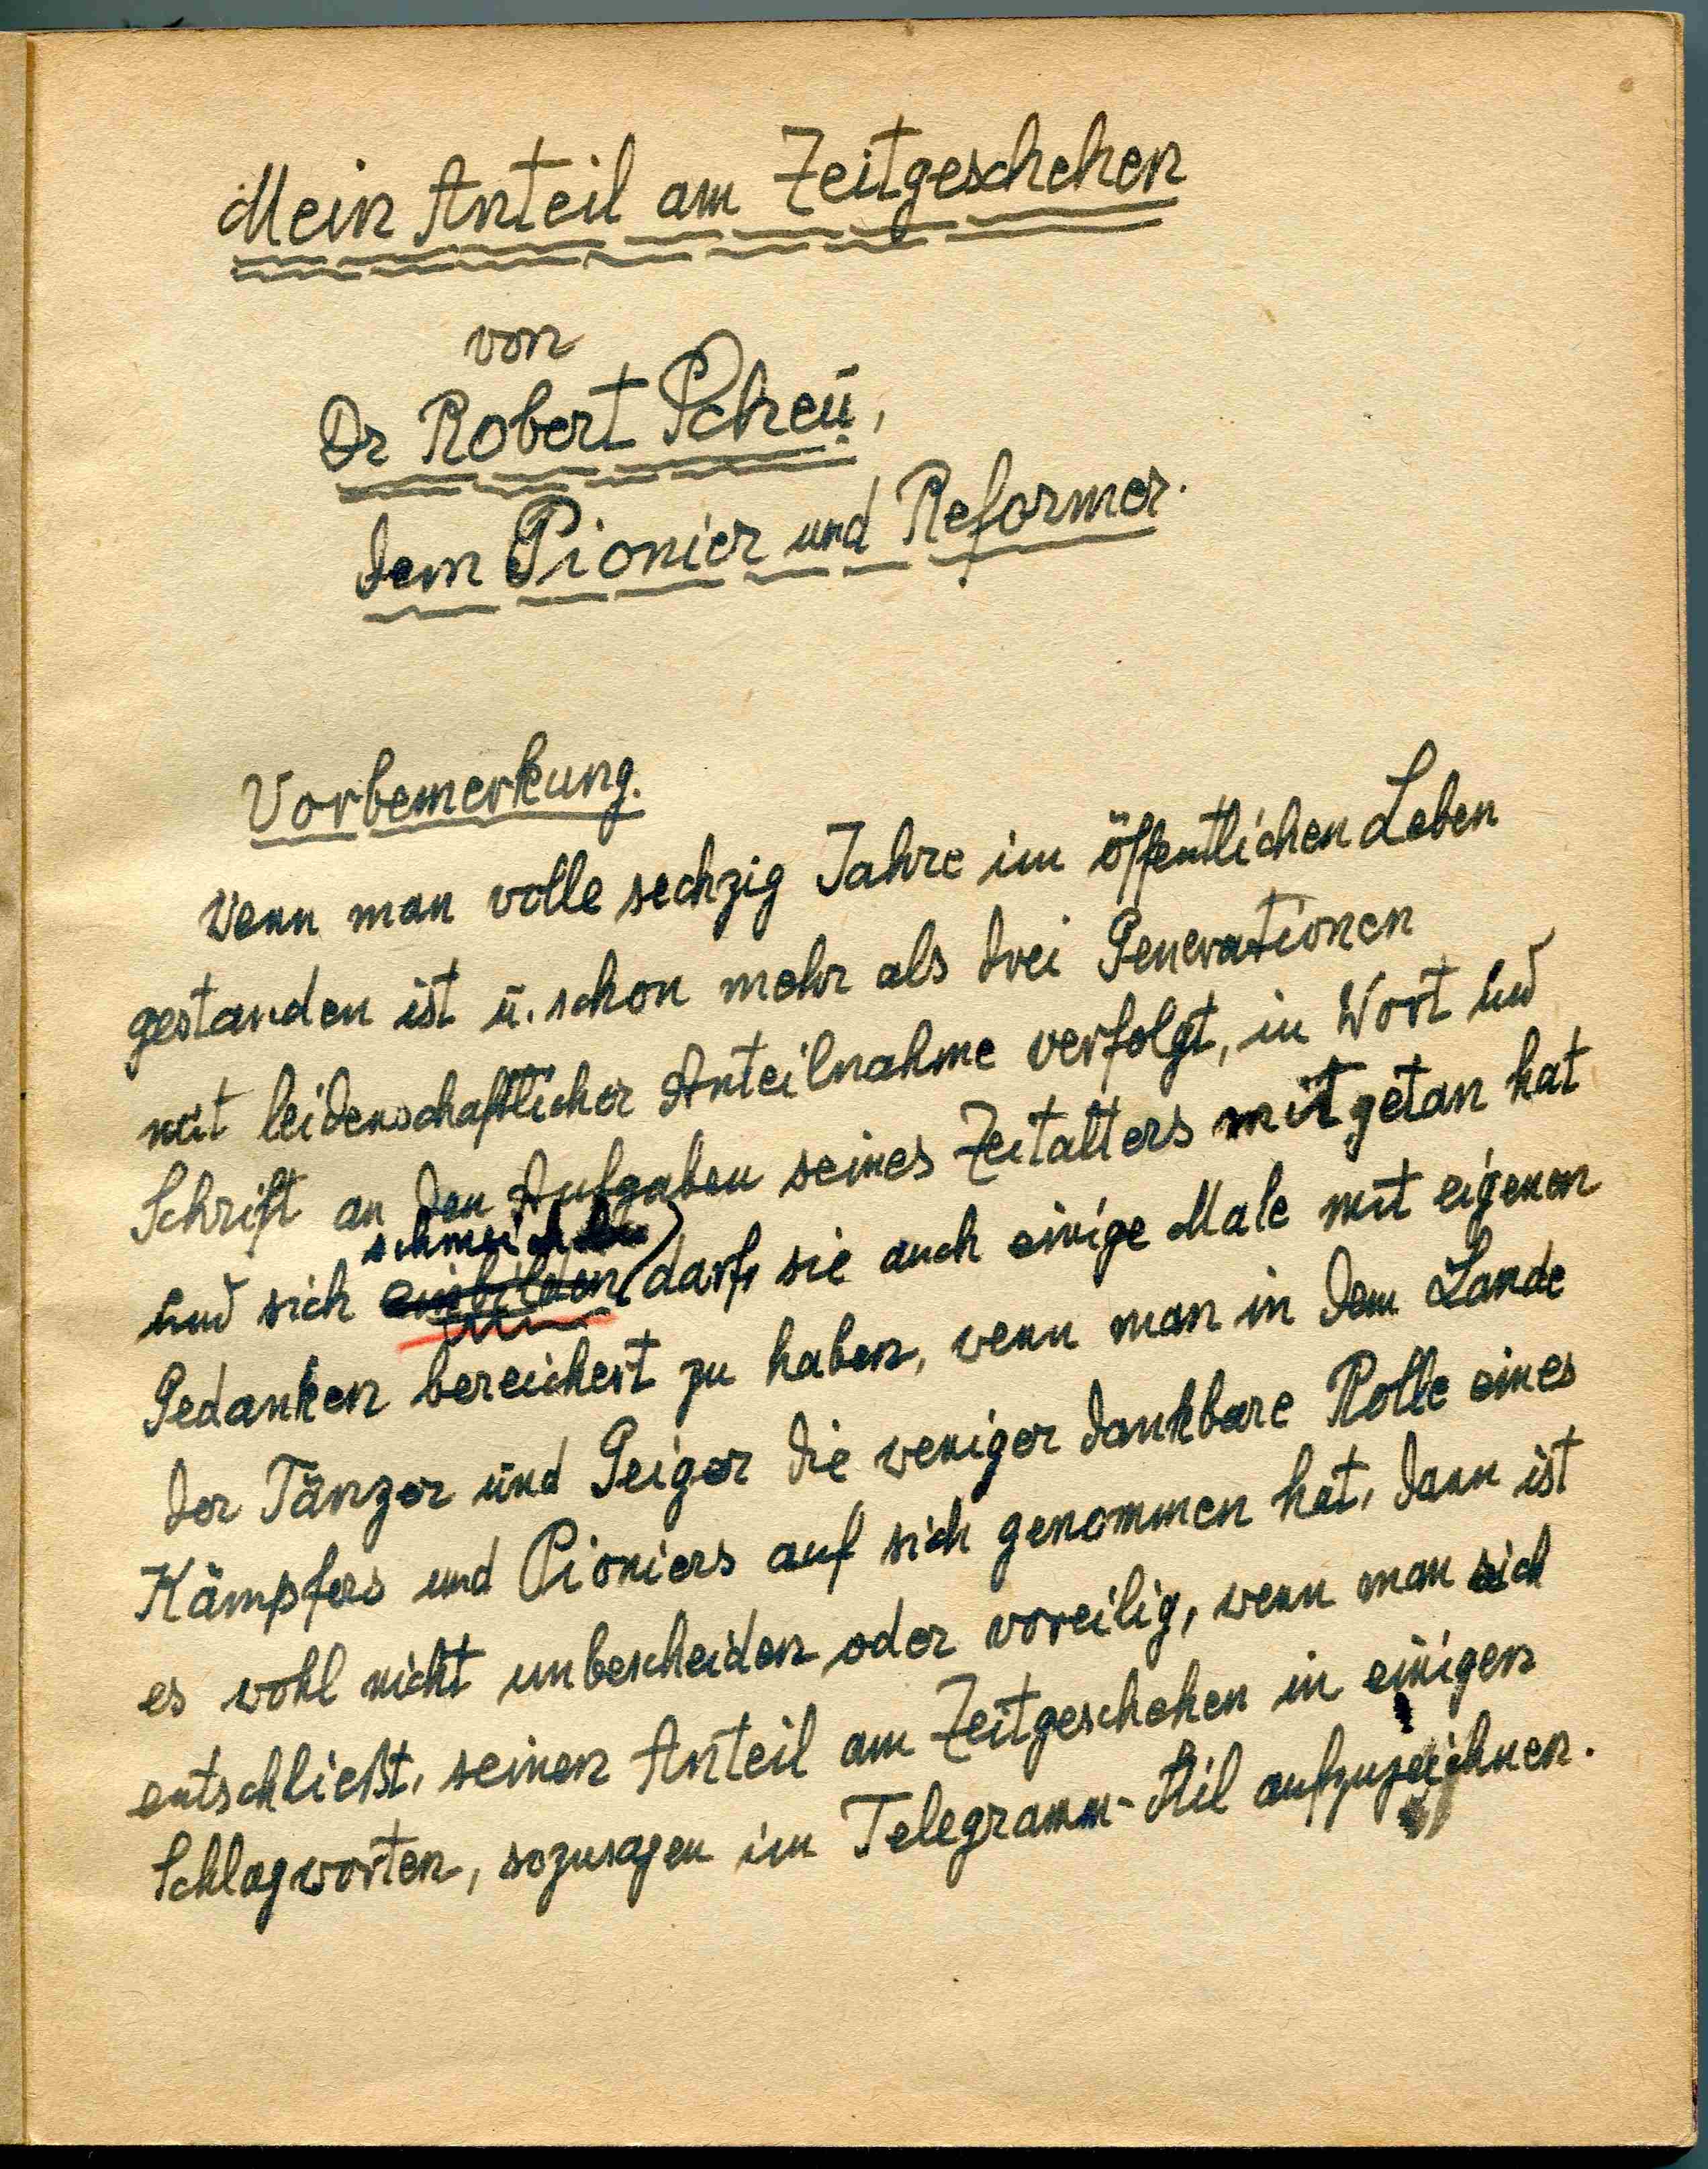 Mein Anteil am Zeitgeschehen
von
Dr Robert Scheu,
dem Pionier und Reformer.
Vorbemerkung.
Wenn man volle sechzig Jahre im öffentlichen Leben
gestanden ist u. schon mehr als drei Generationen
mit leidenschaftlicher Anteilnahme verfolgt, in Wort und
Schrift an den Aufgaben seines Zeitalters mitgetan hat
schmeicheln
und sich einbilden darf, sie auch einige Male mit eigenen
Gedanken bereichert zu haben, wenn man in dem Lande
der Tänzer und Geiger die weniger dankbare Rolle eines
Kämpfers und Pioniers auf sich genommen hat, dann ist
es wohl nicht unbescheiden oder voreilig, wenn man sich
entschließt, seinen Anteil am Zeitgeschehen in einigen
Schlagworten, sozusagen im Telegramm-Stil aufzuzeichnen.